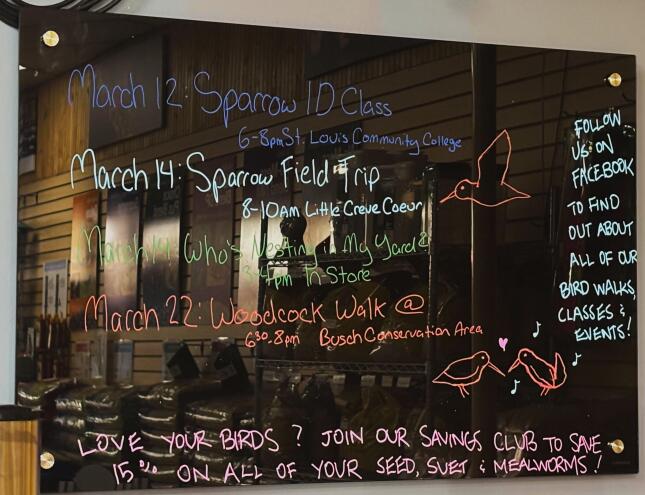 March 12: Sparrow ID Class
6-8pm St. Louis Community College
March 14: Sparrow Field Trip
8-10AM Little Creve Coeur
March 14: Who's Nesting in My Yard?
3-4pm In-Store
March 22: Woodcock Walk @
6:30-8pm Busch Conservation Area
FOLLOW
US ON
FACEBOOK
TO FIND
OUT ABOUT
ALL OF OUR
BIRD WALKS,
CLASSES &
EVENTS!
LOVE YOUR BIRDS? JOIN OUR SAVINGS CLUB TO SAVE
15% ON ALL OF YOUR SEED, SUET & MEALWORMS!